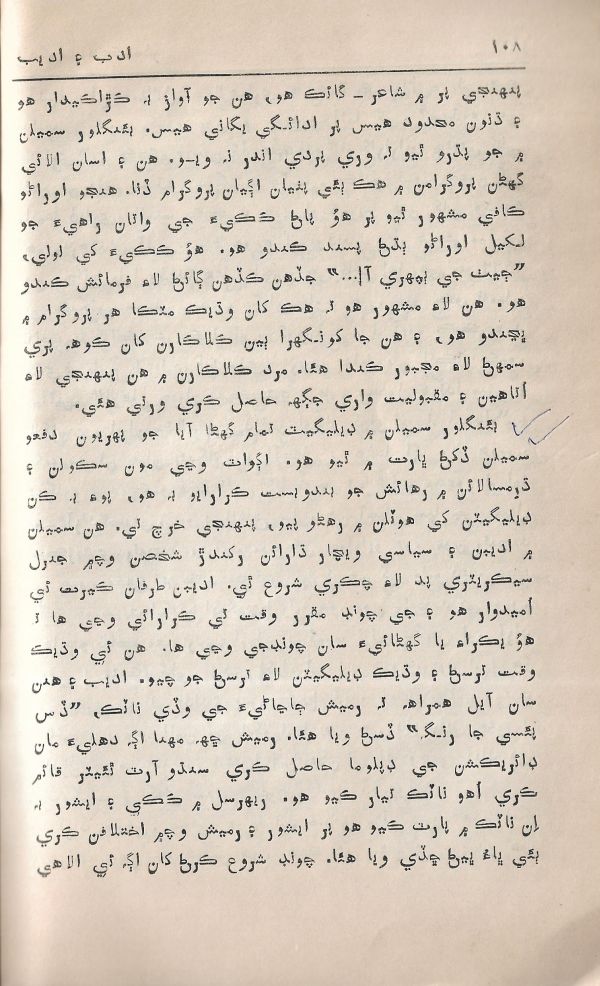 ۱۰۸ ادب ۽ اديب
پنهنجي پر ۾ شاعر ـ ڳائڪ هو، هن جو آواز بہ ڪڙاڪيدار هو
۽ ڌنون محدود هيس پر ادائگي يگاني هيس. بئنگلور سميلن
۾ جو پڌرو ٿيو تہ وري پردي اندر نہ ويو. هن ۽ اسان الائي
گهڻن پروگرامن ۾ هڪ ٻئي پٺيان اڳيان پروگرام ڏنا. هنجو اوراڻو
ڪافي مشهور ٿيو پر هوُ پاڻ ڪڪيءَ جي واتان راهيءَ جو
لکيل اوراڻو ٻڌڻ پسند ڪندو هو. هوُ ڪڪيءَ کي لولي،
”چيٽ جي ٻيهري آ...“ جڏهن ڪڏهن ڳائڻ لاءِ فرمائش ڪندو
هو. هن لاءِ مشهور هو تہ هڪ کان وڌيڪ مٽڪا هر پروگرام ۾
ڀڃندو هو، ۽ هن جا کونگهرا ٻين ڪلاڪارن کان کوهہ پري
سمهڻ لاءِ مجبور ڪندا هئا. مرد ڪلاڪارن ۾ هن پنهنجي لاءِ
اُتاهين ۽ مقبوليت واري جڳهہ حاصل ڪري ورتي هئي.
بئنگلور سميلن ۾ ڊيليگيٽ تمام گهڻا آيا جو پهريون دفعو
سميلن ڏکڻ ڀارت ۾ ٿيو هو. اڳواٽ وڃي مون سڪولن ۽
ڌرمسالائن ۾ رهائش جو بندوبست ڪرارايو بہ هو، پوءِ بہ ڪن
ڊيليگيٽن کي هوٽلن ۾ رهڻو پيو، پنهنجي خرچ تي. هن سميلن
۾ اديبن ۽ سياسي ويچار ڌارائن رکندڙ شخصن وچ۾ جنرل
سيڪريٽري پد لاءِ چڪري شروع ٿي. اديبن طرفان ڪيرت ئي
اُميدوار هو ۽ جي چونڊ مقرر وقت تي ڪرارائي وڃي ها تہ
هوُ يڪراءِ يا گهڻائيءَ سان چونڊجي وڃي ها. هن ئي وڌيڪ
وقت ترسڻ ۽ وڌيڪ ڊيليگيٽن لاءِ ترسڻ جو چيو. اديب ۽ هنن
سان آيل همراهہ تہ رميش ڇاڇاڻيءَ جي وڏي ناٽڪ، ”ڏس
پئسي جا رنگ“ ڏسڻ ويا هئا. رميش ڇهہ مهنا اڳہ دهليءَ مان
ڊائريڪشن جي ڊپلوما حاصل ڪري سنڌو آرٽ ٿئيٽر قائم
ڪري اُهو ناٽڪ تيار ڪيو هو. ريهرسل ۾ ڪڪي ۽ ايشور بہ
اِن ناٽڪ ۾ پارٽ ڪيو هو پر ايشور ۽ رميش وچ۾ اختلافن ڪري
ٻئي ڀاءُ ڀيڻ ڇڏي ويا هئا. چونڊ شروع ڪرڻ کان اڳہ ئي الاهي